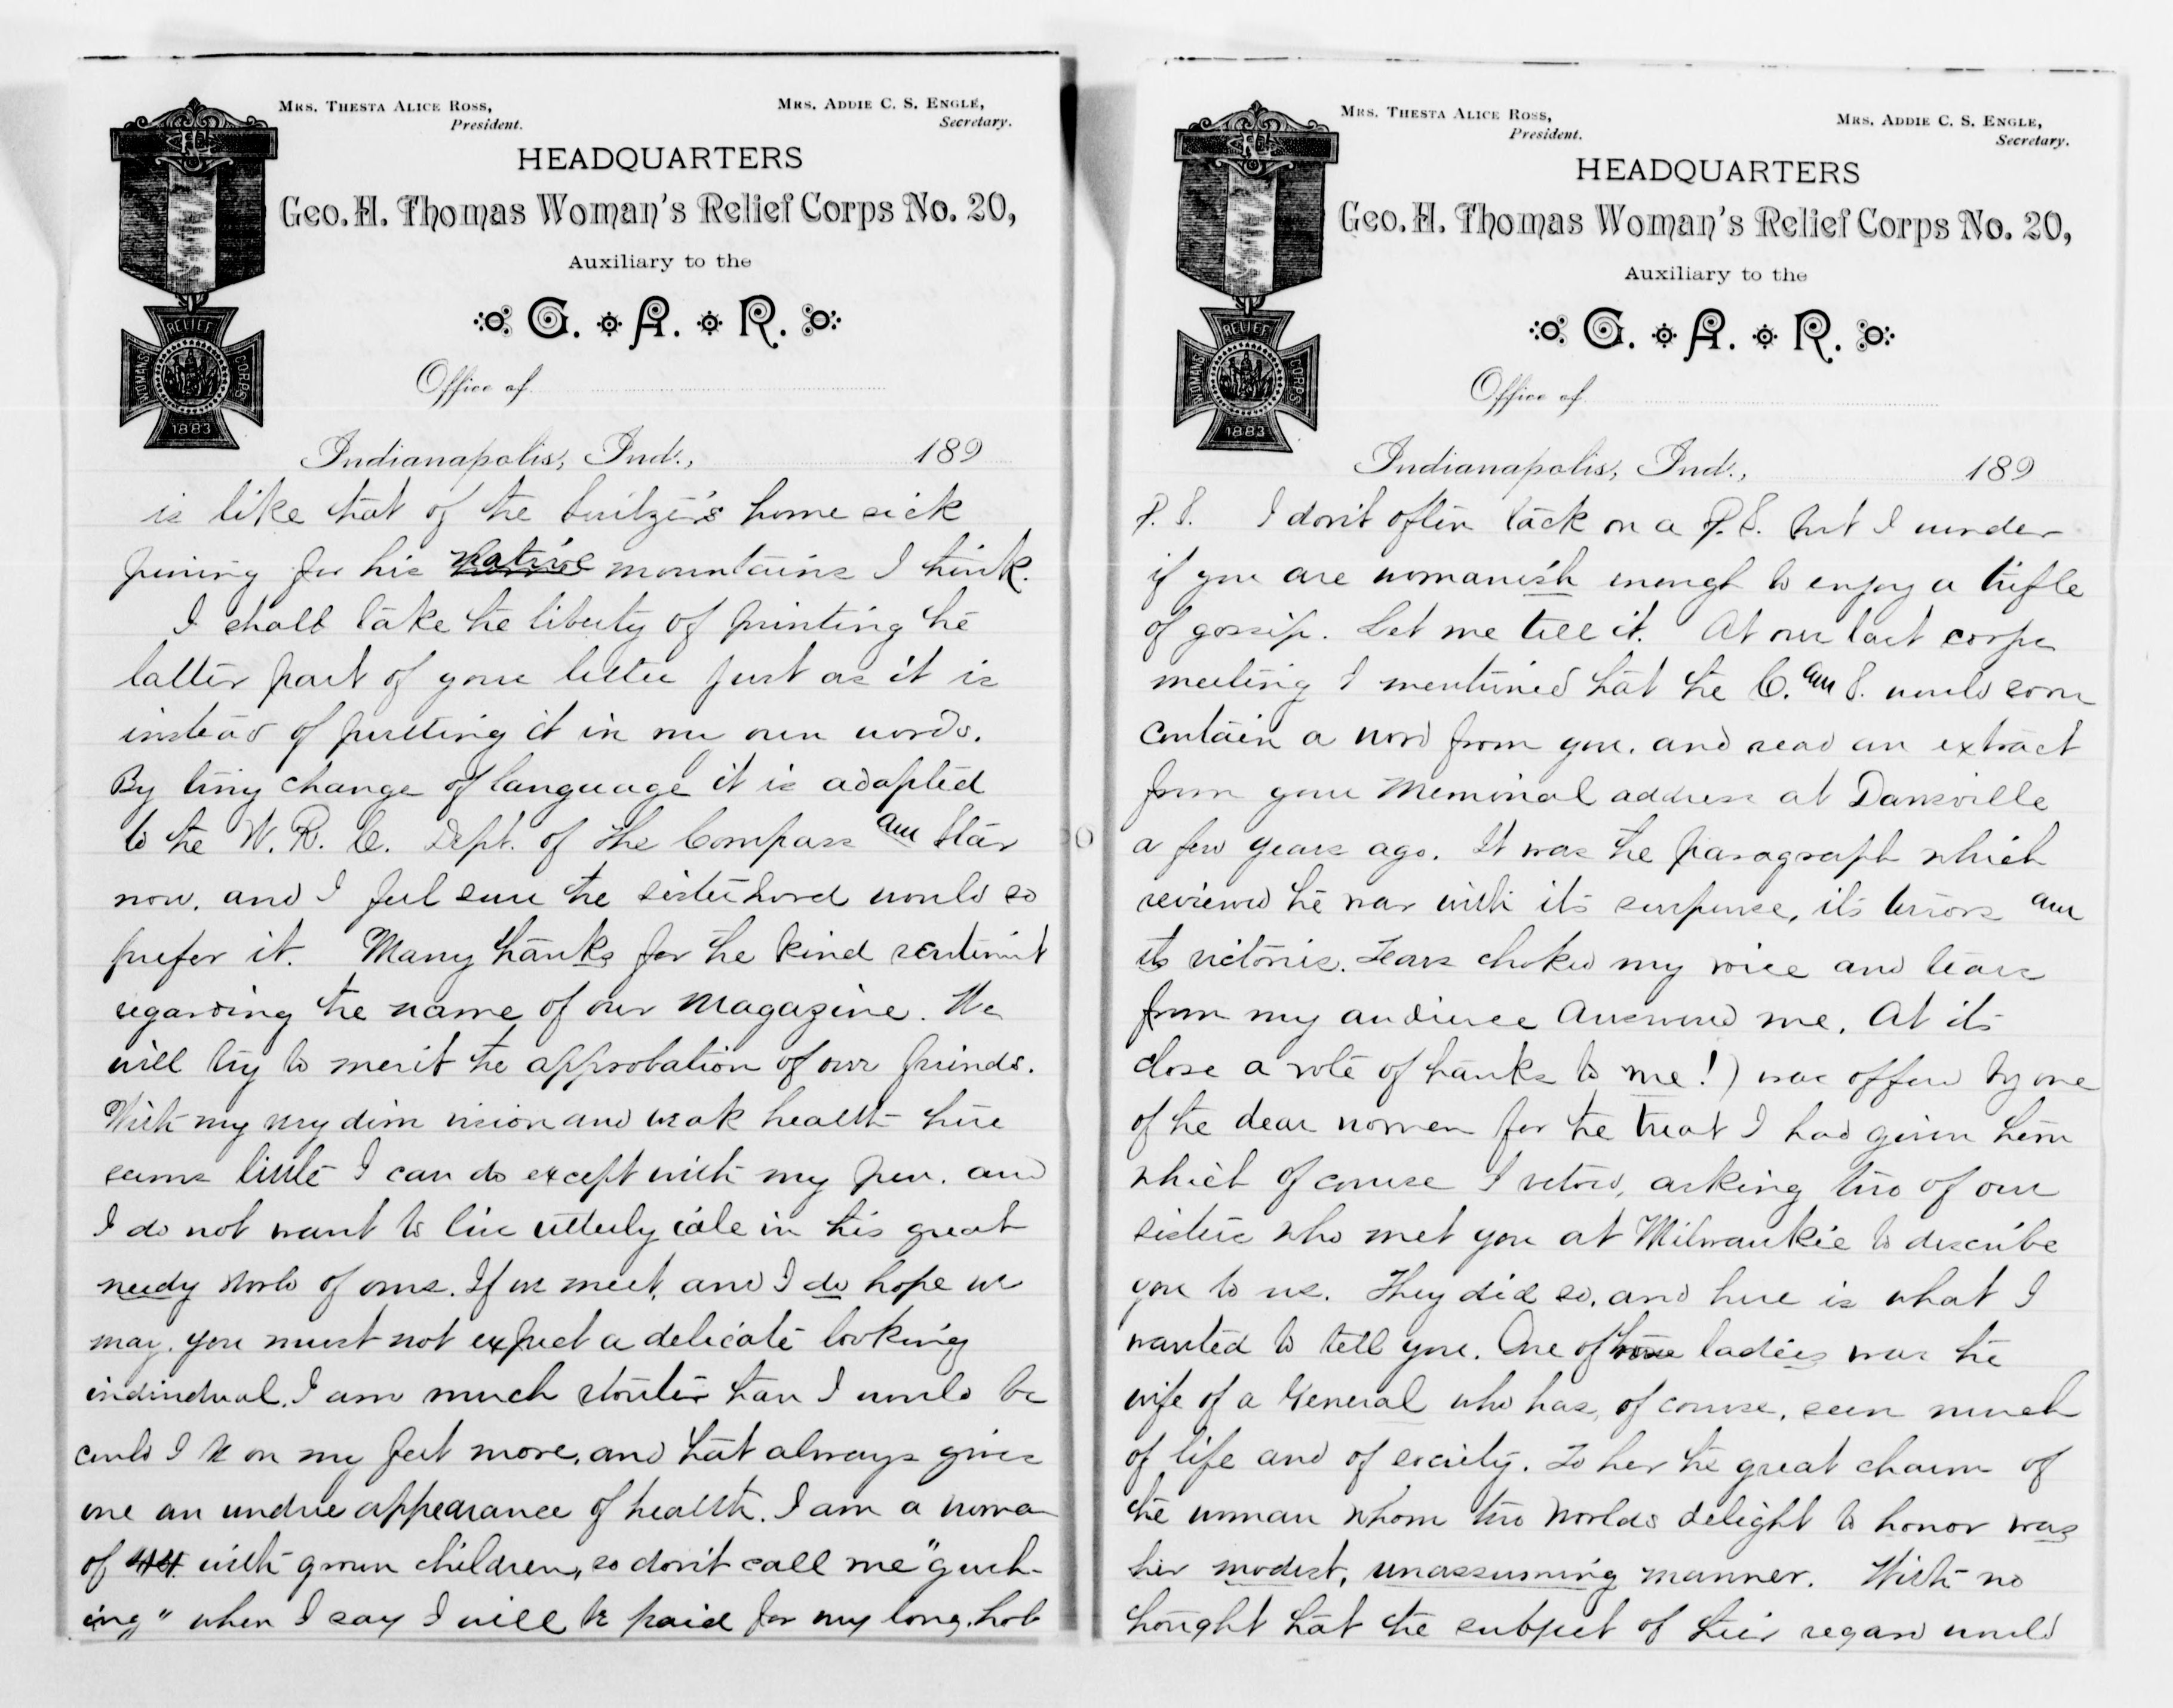 MRS. THESTA ALICE ROSS,
President.
MRS. ADDIE C. S. ENGLE,
Secretary.
HEADQUARTERS
Geo. H. Thomas Woman's Relief Corps No. 20,
Auxiliary to the
G. A. R.
WOMANS RELIEF CORPS
1883
Office of
Indianapolis, Ind., 189
is like that of the Switzer's home sick
pining for his native mountains I think.
I shall take the liberty of printing the
latter part of your letter just as it is
instead of putting it in my own words.
By tiny change of language it is adapted
to the W. R. C. Dept. of the Compass and Star
now, and I feel sure the sisterhood would so
prefer it. Many thanks for the kind sentiment
regarding the name of our Magazine. We
will try to merit the approbation of our friends.
With my very dim vision and weak health there
seems little I can do except with my pen, and
I do not want to live utterly idle in this great
needy world of ours. If we meet, and I do hope we
may, you must not expect a delicate looking
individual. I am much stouter than I would be
could I be on my feet more, and that always gives
one an undue appearance of health. I am a woman
of 44 with grown children, so don't call me "gush-
ing" when I say I will be paid for my long, hot
MRS. THESTA ALICE ROSS,
President.
MRS. ADDIE C. S. ENGLE,
Secretary.
HEADQUARTERS
Geo. H. Thomas Woman's Relief Corps No. 20,
Auxiliary to the
G. A. R.
WOMANS RELIEF CORPS
1883
Office of
Indianapolis, Ind., 189
P. S. I don't often tack on a P. S. but I wonder
if you are womanish enough to enjoy a trifle
of gossip. Let me tell it. At our last corps
meeting I mentioned that the C. and S. would soon
contain a word from you, and read an extract
from your Memorial address at Dansville
a few years ago. It was the paragraph which
reviewed the war with its suspense, its terrors and
its victories. Tears choked my voice and tears
from my audience answered me. At its
close a vote of thanks to me!) was offered by one
of the dear women for the treat I had given them
which of course I vetoed, asking two of our
sisters who met you at Milwaukie to describe
you to us. They did so, and here is what I
wanted to tell you. One of these ladies was the
wife of a General who has, of course, seen much
of life and of society. To her the great charm of
the woman whom two worlds delight to honor was
her modest, unassuming manner. With no
thought that the subject of their regard would